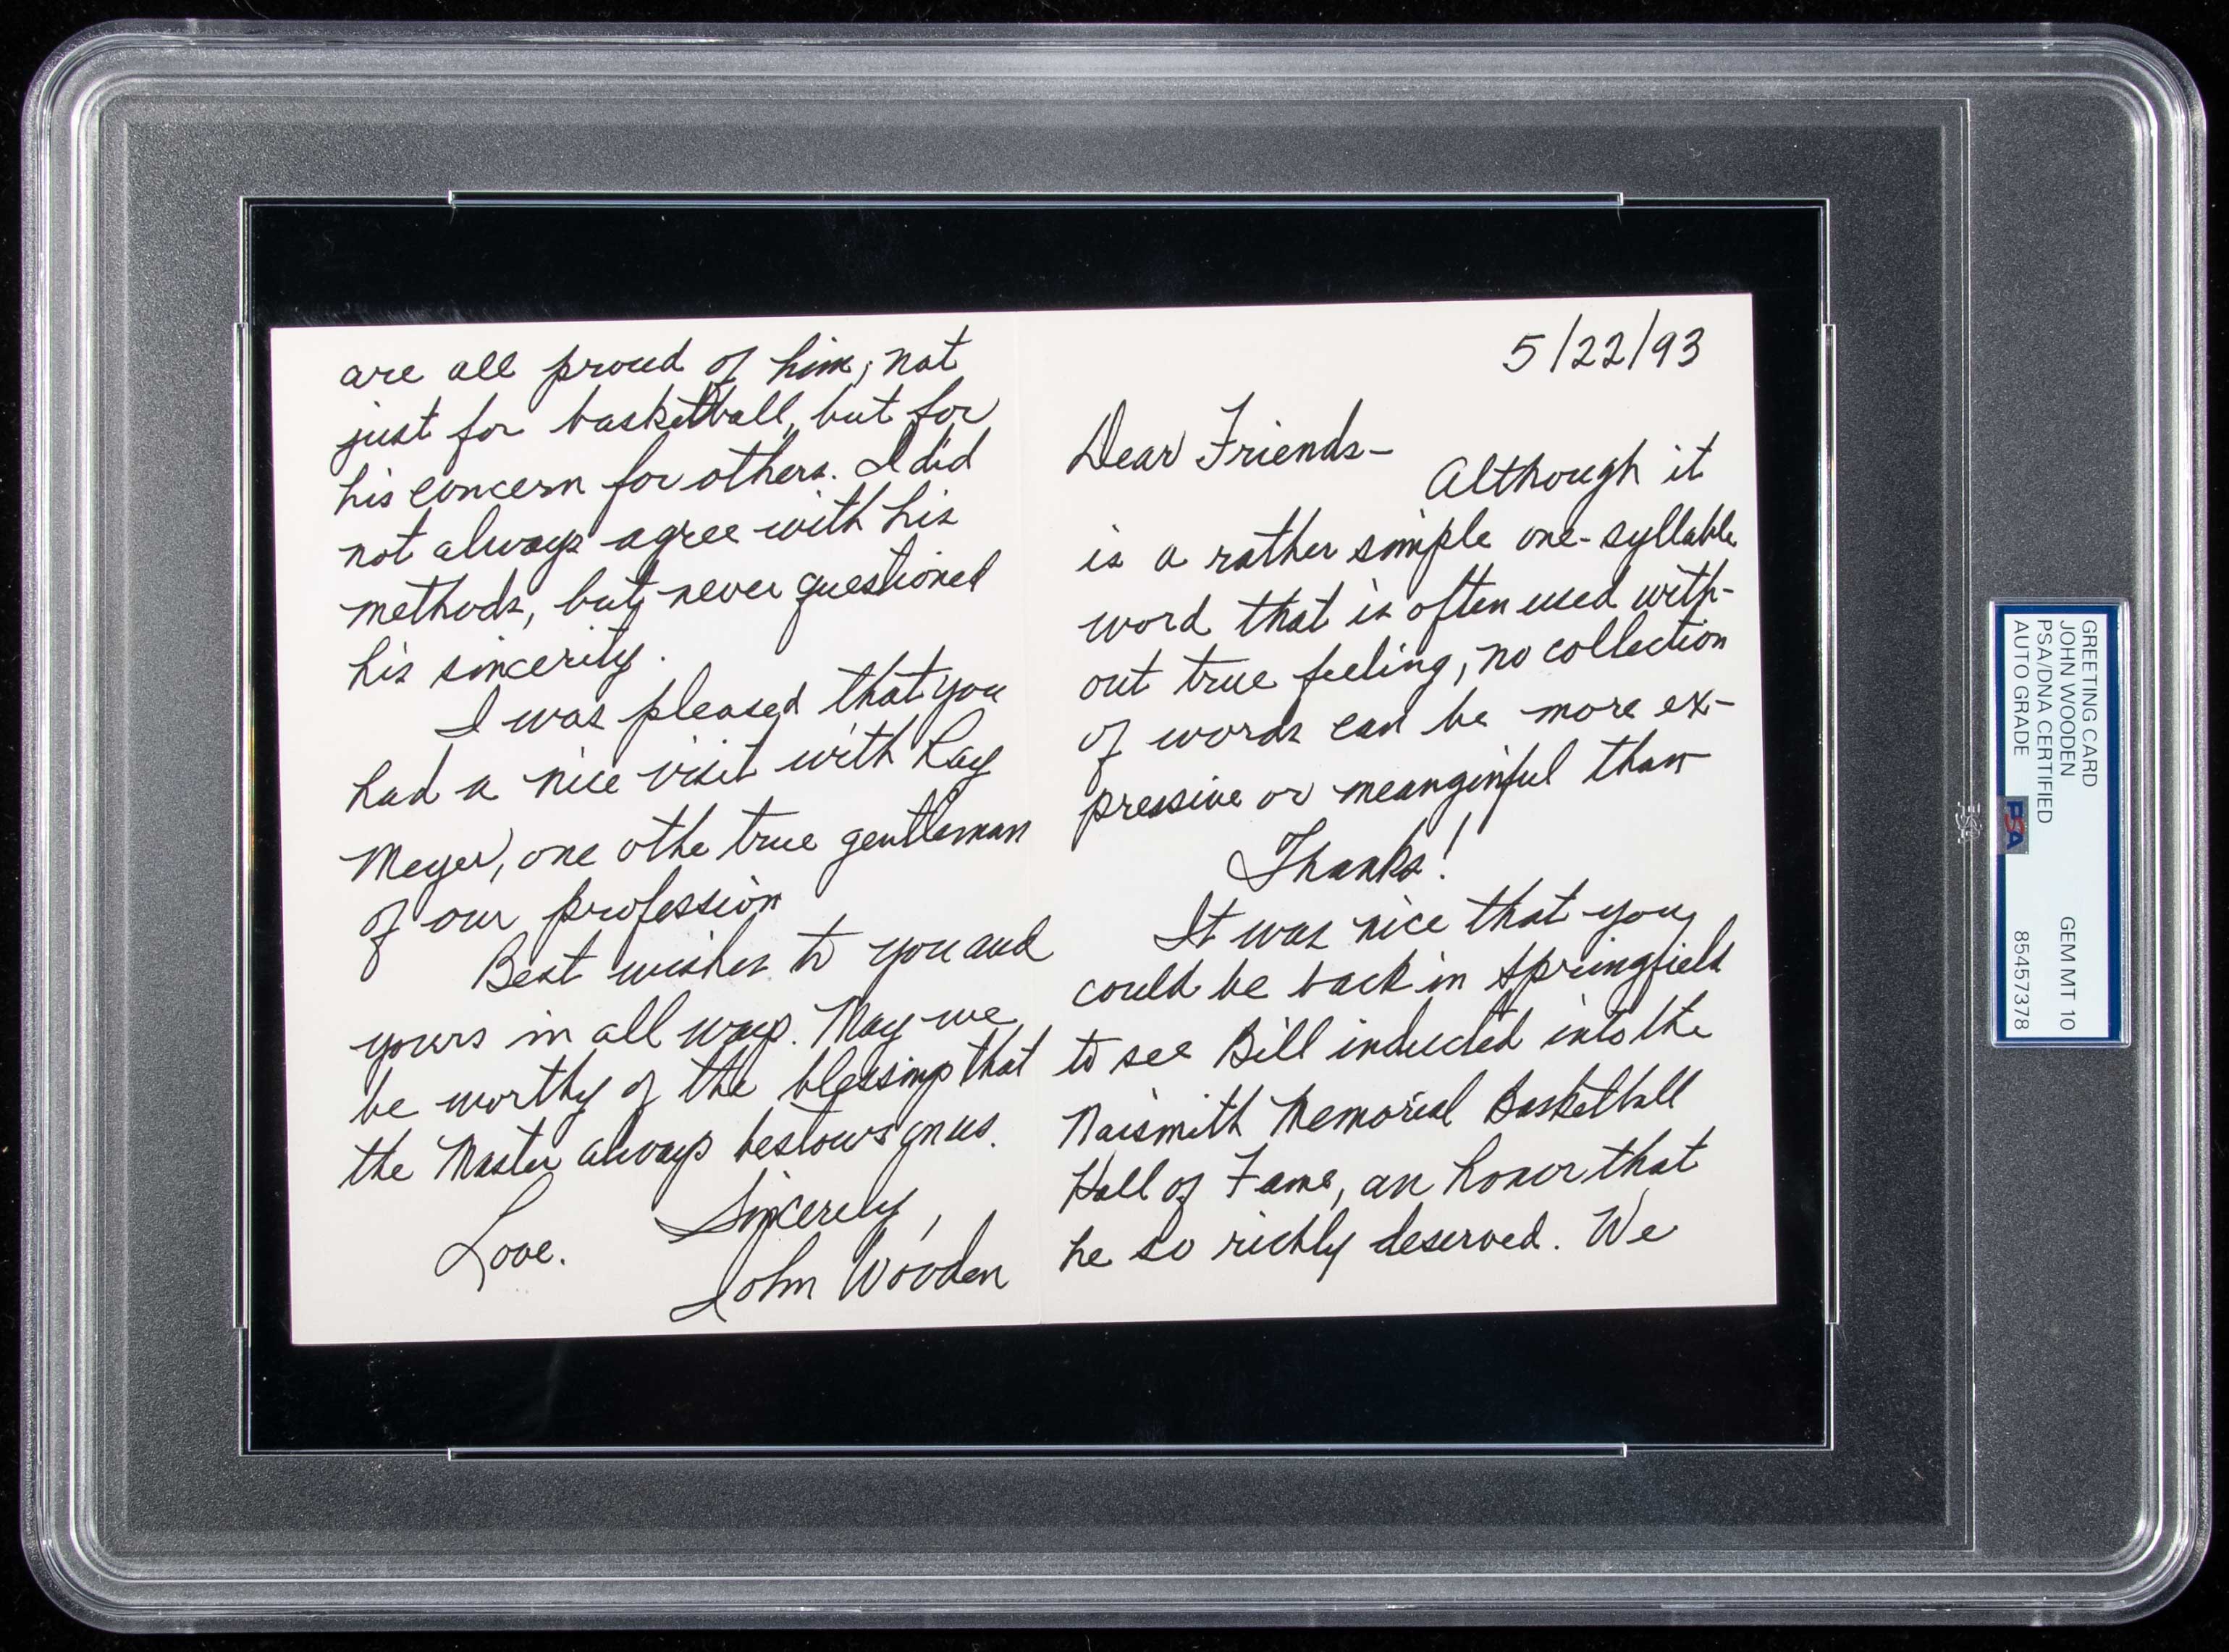 5/22/93
Dear Friends-
Although it
is a rather simple one-syllable
word that is often used with-
out true feeling, no collection
of words can be more ex-
pressive or meanginful than
Thanks!
It was nice that you
could be back in Springfield
to see Bill inducted into the
Naismith Memorial Basketball
Hall of Fame, an honor that
he so richly deserved. We
are all proud of him; not
just for basketball, but for
his concern for others. I did
not always agree with his
methods, but never questioned
his sincerity.
I was pleased that you
had a nice visit with Ray
Meyer, one othe true gentleman
of our profession
Best wishes to you and
yours in all ways. May we
be worthy of the blessings that
the Master always bestows on us.
Love. Sincerely,
John Wooden
GREETING CARD
JOHN WOODEN GEM MT 10
PSA/DNA CERTIFIED
AUTO GRADE 85457378
PSA